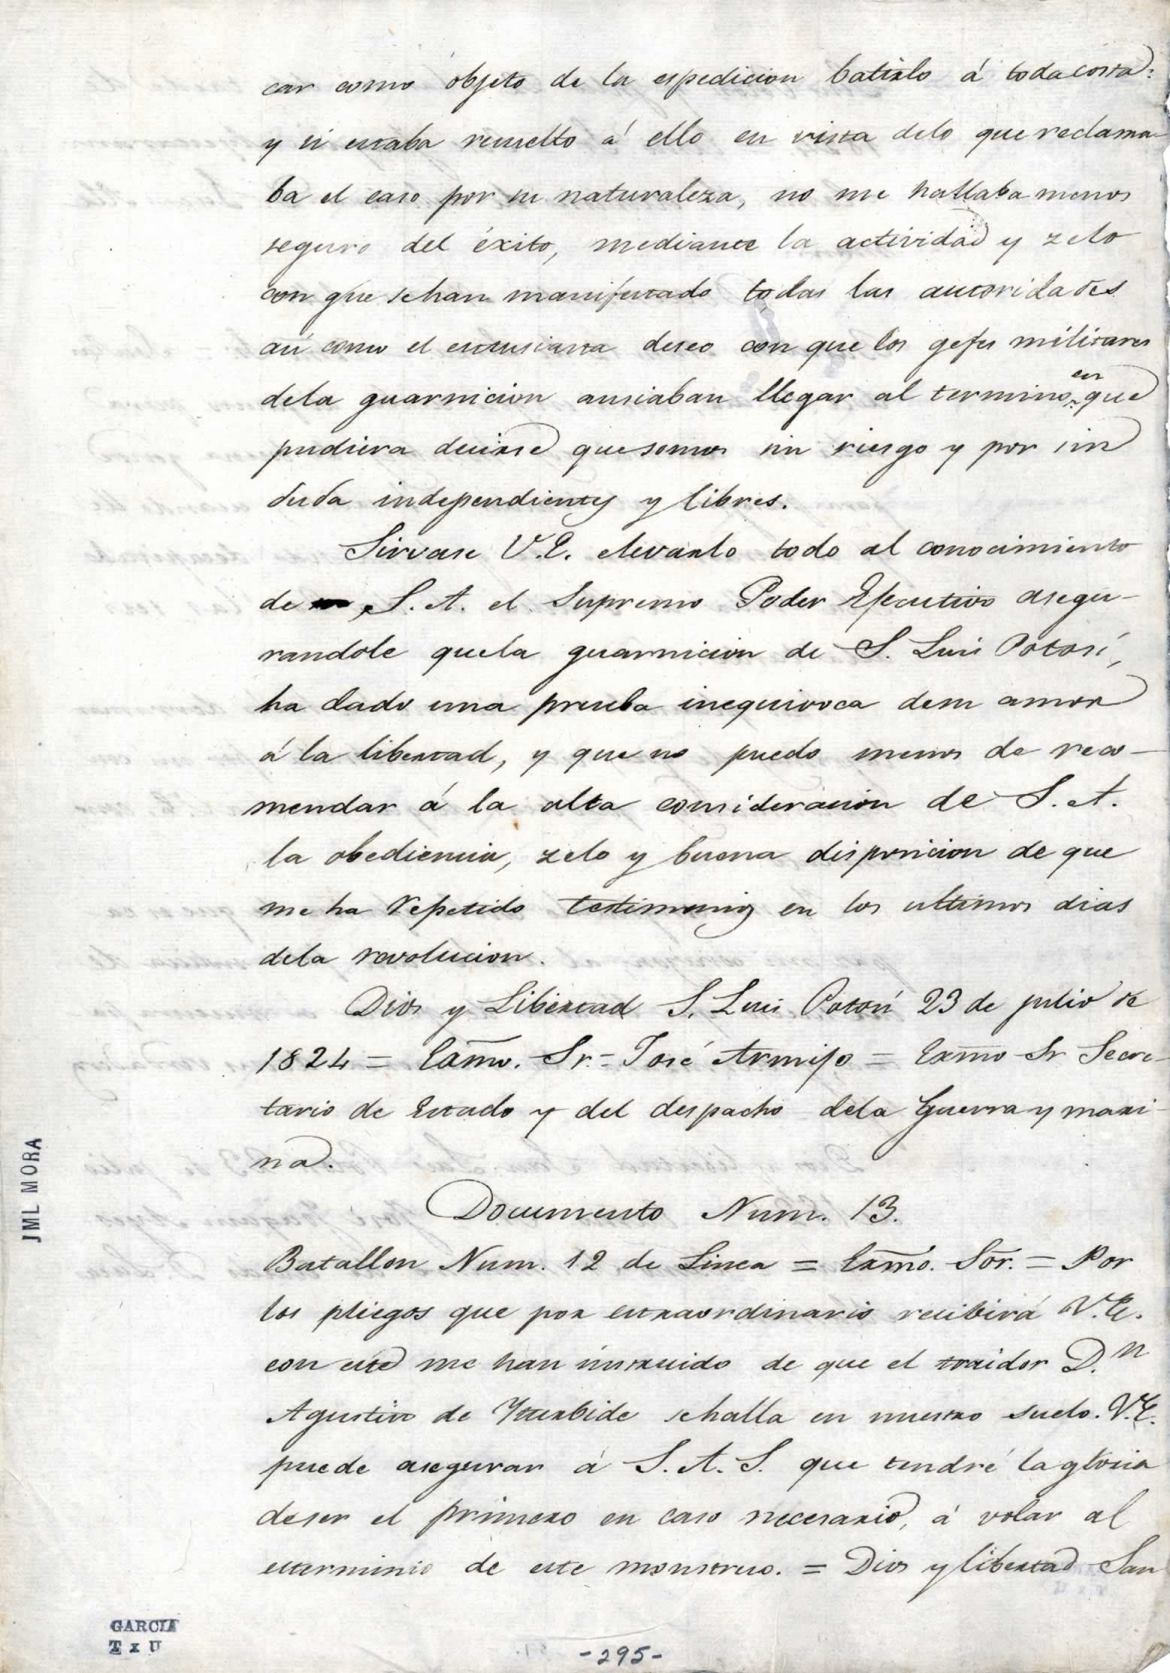 car como objeto de la espedicion batirlo á toda costa:
y si estaba resuelto á ello en vista delo que reclama-
ba el caso por su naturaleza, no me hallaba menos
seguro del éxito, mediante la actividad y zelo
con que sehan manifestado todas las autoridades
asi como el entusiasta deseo con que los gefes militares
dela guarnicion ansiaban llegar al termino en que
pudiera decirse quesomos sin riesgo y por sin
duda independientes y libres.
Sirvase V.E. elevarlo todo al conocimiento
de S. A. el Supremo Poder Ejecutivo asegu-
randole quela guarnicion de S. Luis Potosí,
ha dado una prueba inequivoca desu amor
á la libertad, y que no puedo menos de reco-
mendar á la alta consideracion de S. A.
la obediencia, zelo y buena disposicion de que
me ha repetido testimonios en los ultimos dias
dela revolucion.
Dios y Libertad S. Luis Potosí 23 de julio de
1824 = Exmo. Sr. = José Armijo = Exmo Sr Secre-
tario de Estado y del despacho dela Guerra y mari-
na.
Documento Num. 13.
Batallon Num. 12 de Linea = Exmo. Sor. = Por
los pliegos que por estraordinario recibirá V.E.
con este me han instruido de que el traidor D.n
Agustin de Yturbide sehalla en nuestro suelo. V.E.
puede asegurar á S. A. S. que tendré la gloria
deser el primero en caso necesario, á volar al
esterminio de este monstruo. = Dios y libertad San
JML MORA
GARCIA
T x U
-295-